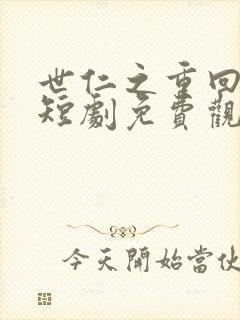 世仁之重回
短劇免費觀
今天開始當伙